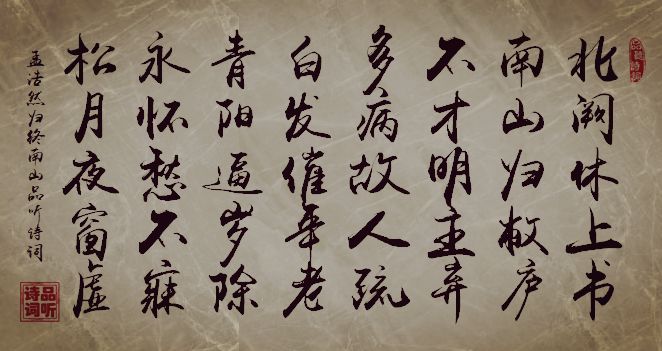 北阙休上书
南山归敝庐
不才明主弃
多病故人疏
白发催年老
青阳逼岁除
永怀愁不寐
松月夜窗虚
孟浩然归终南山品听诗词
品听
诗词